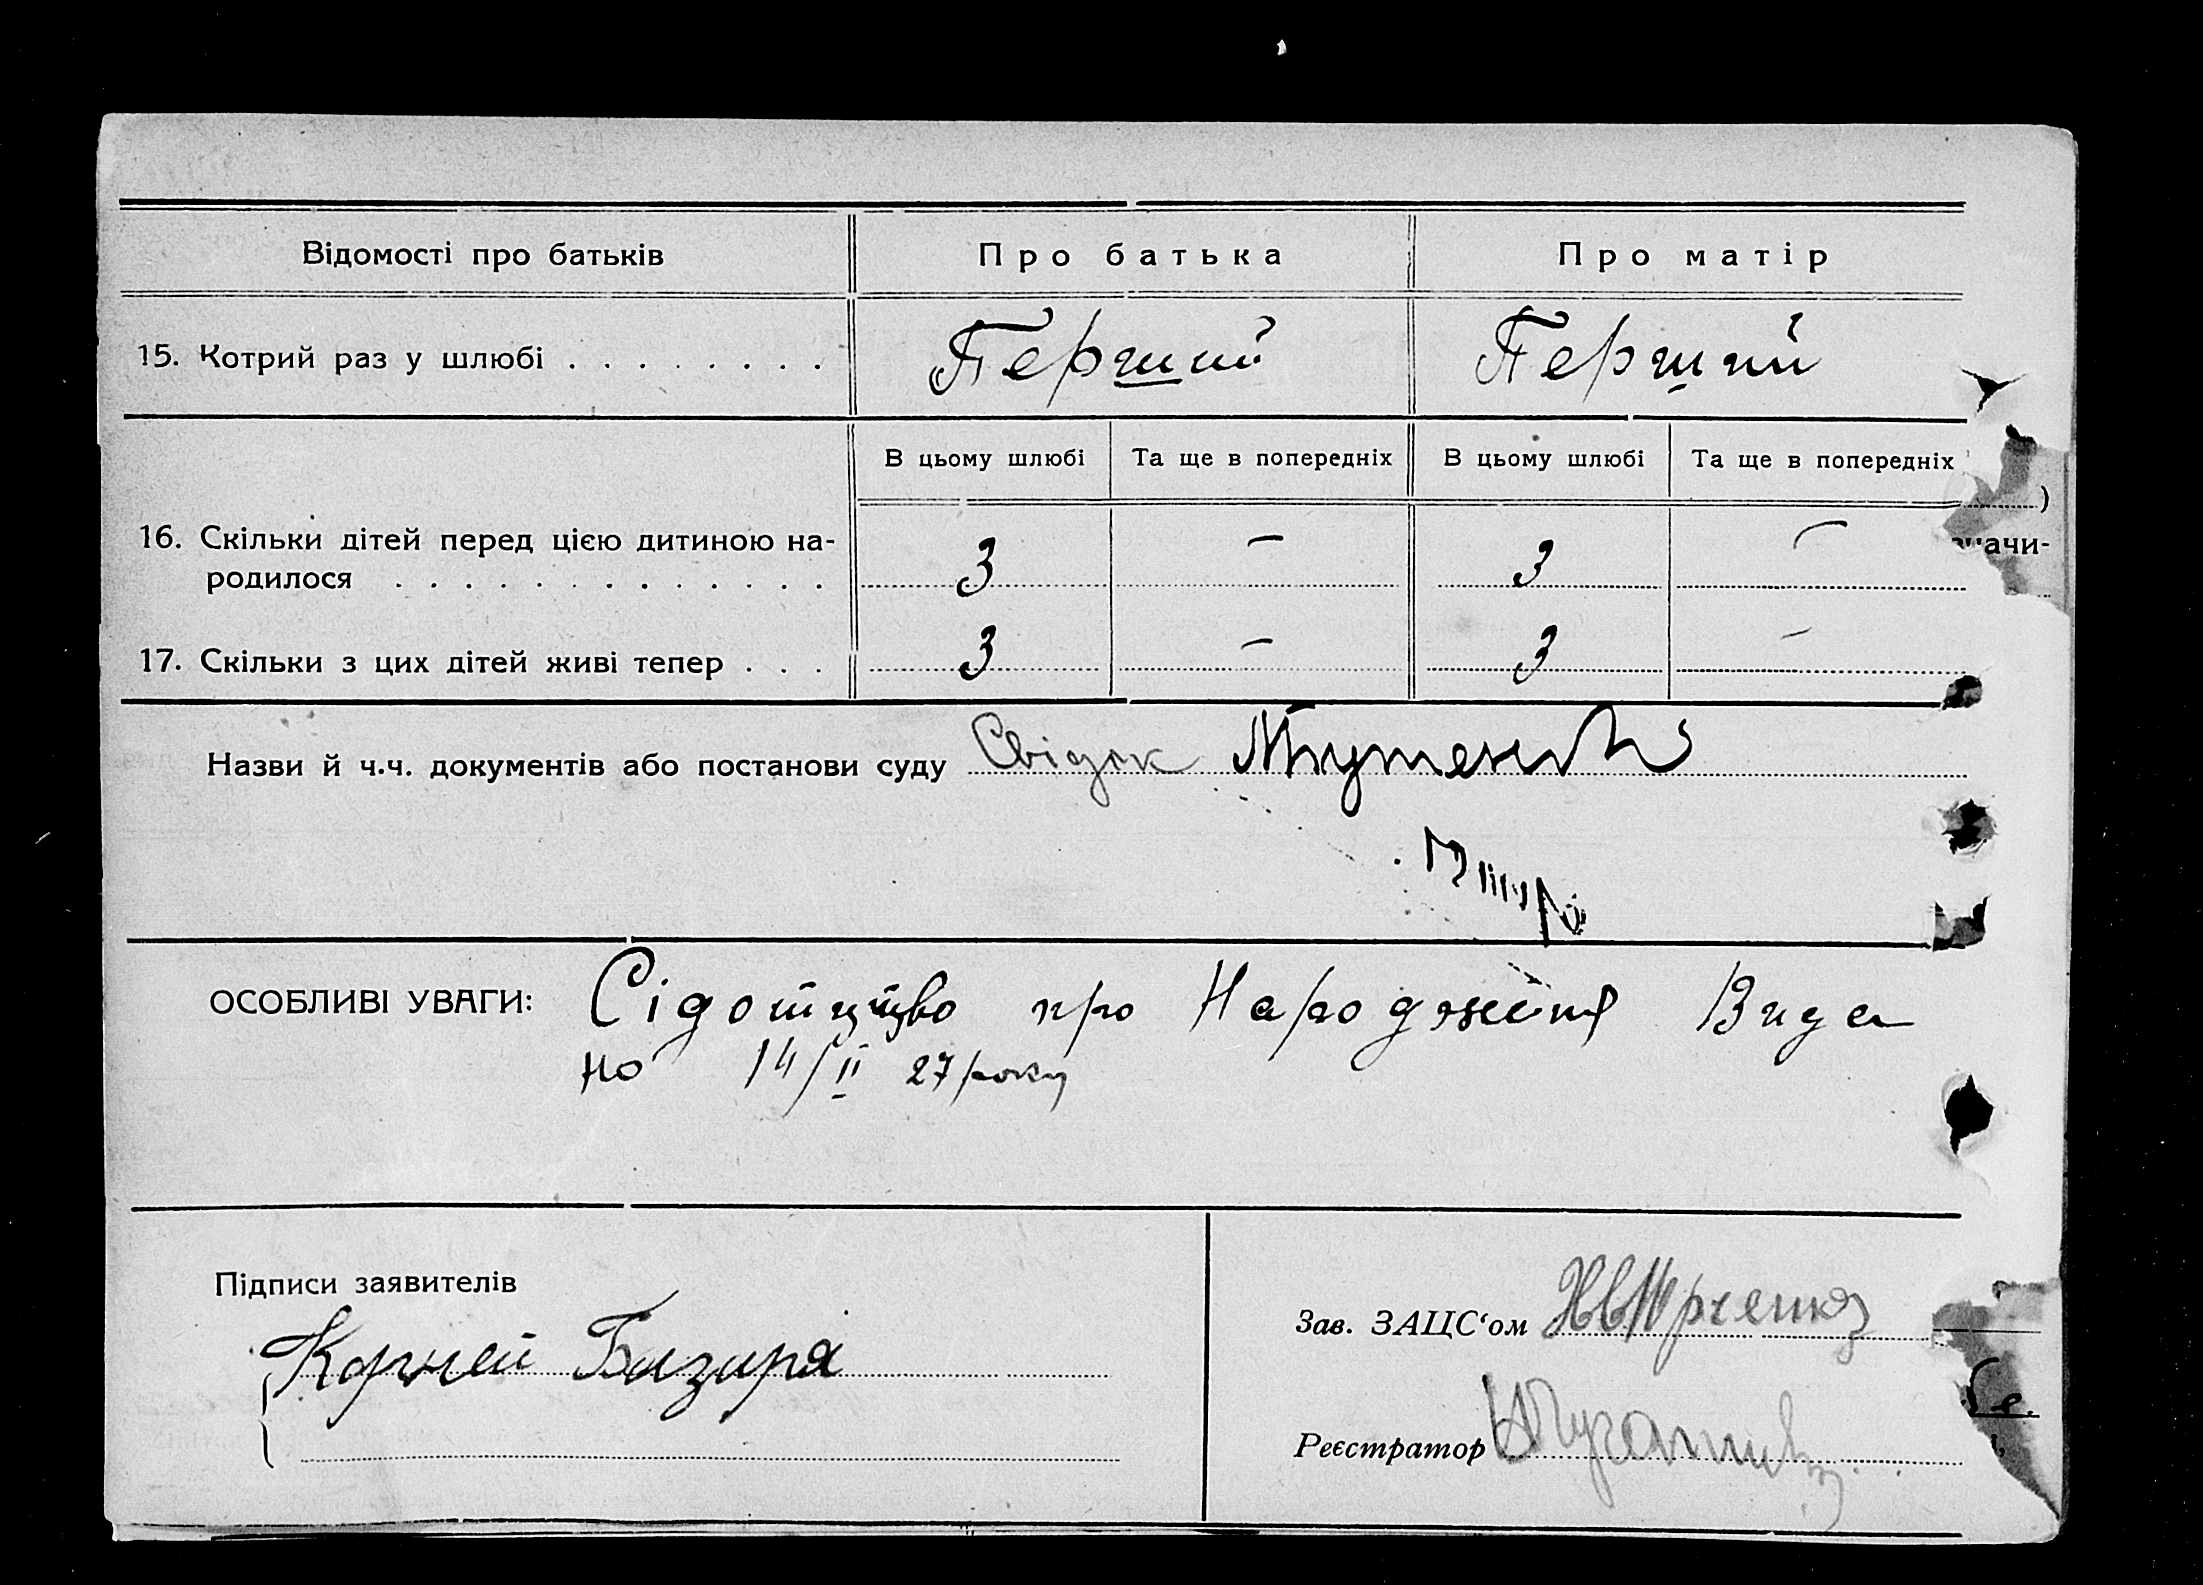 Відомості про батьків
Про батька
Про матір
15. Котрий раз у шлюбі . . . . . . . .
Перший
Перший
В цьому шлюбі
Та ще в попередніх
В цьому шлюбі
Та ще в попередніх
)
16. Скільки дітей перед цією дитиною на-
родилося . . . . . . . . . . . . .
3
–
3
–
ачи-
17. Скільки з цих дітей живі тепер . . .
3
–
3
–
Назви й ч.ч. документів або постанови суду Свідок
ОСОБЛИВІ УВАГИ:
про Народження Вида
но 14/II 27 року
Підписи заявителів
Корней
Зав. ЗАЦС‘ом
Реєстратор